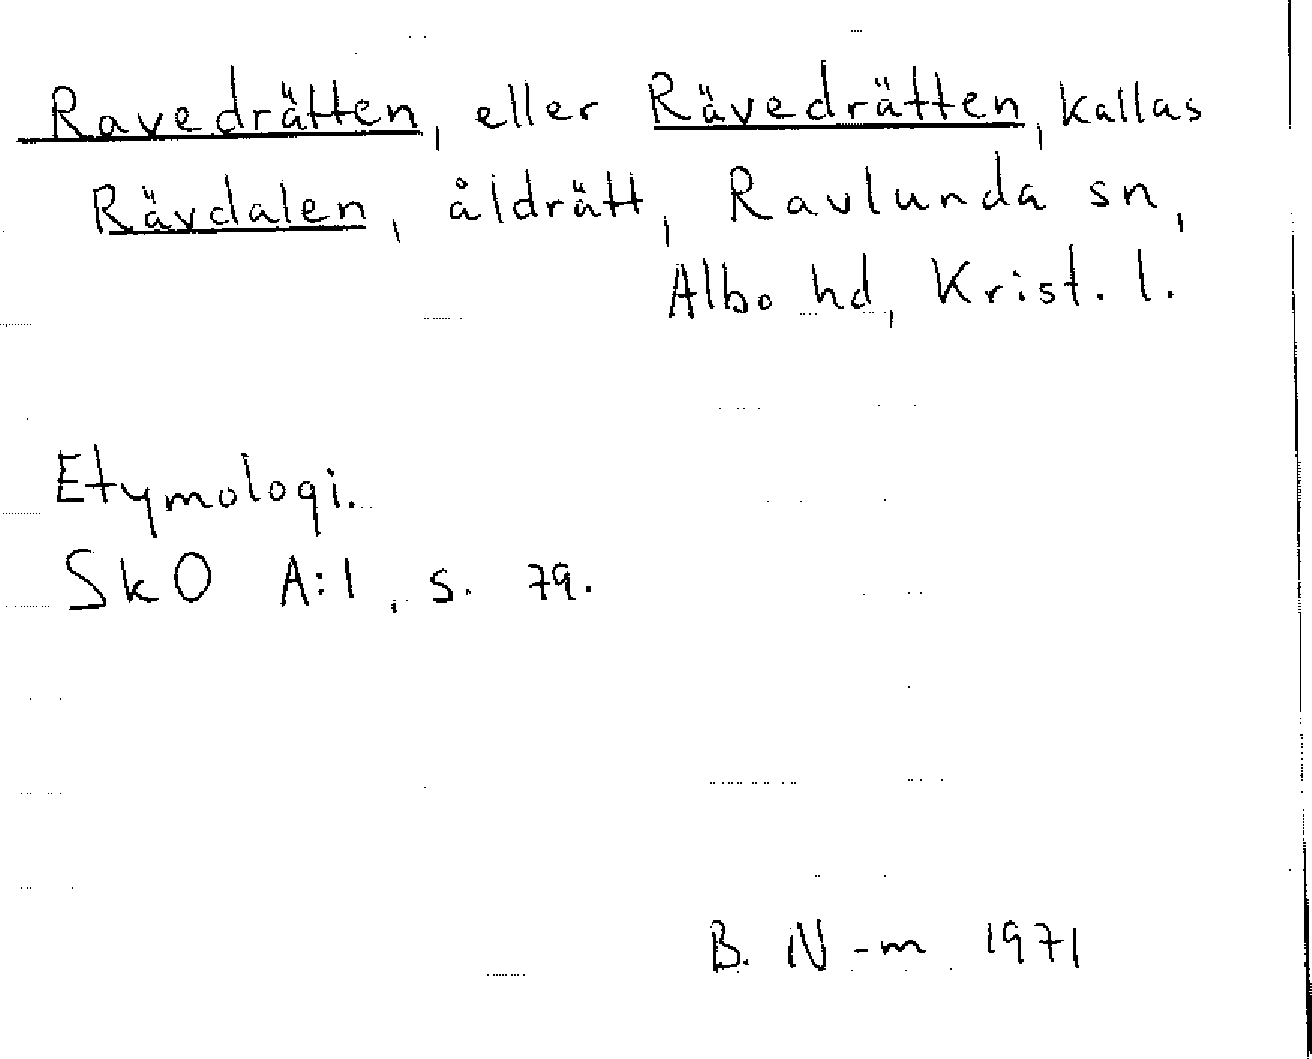 Ravedrätten, eller Rävedrätten, kallas
Rävdalen, åldrätt, Ravlunda sn,
Albo hd, Krist. l.
Etymologi.
SkO A:1, s. 79.
B. N-m 1971